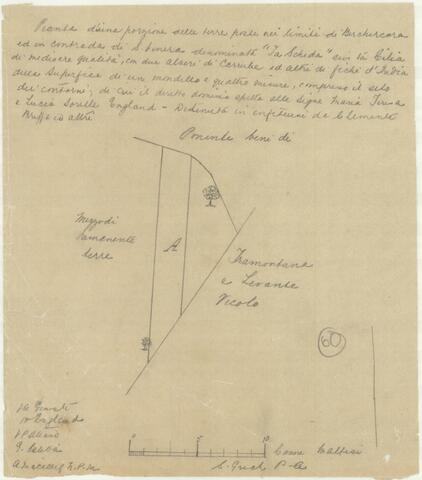 Pianta d'una porzione delle terre poste nei limiti di Birchircara
ed in contrada di S. Venera denominate "Ta Scheda" sive ta Cilia
di mediocre qualità, con due alberi di Carrube ed altri di fichi d'India
della Superficie di un mondello e quattro misure, compreso il sito
dei contorni, di cui il diretto dominio spetta alle Signe Maria Teresa
e Lucia Sorelle England - Detenute in enfiteusi da Clemente
Busso ed altri
Ponente beni di
Mezzodi
rimanente
terre
A
Tramontana
e Levante
Vicolo
60
England
0 5 10 Canne Maltesi
G. Grech P.A.